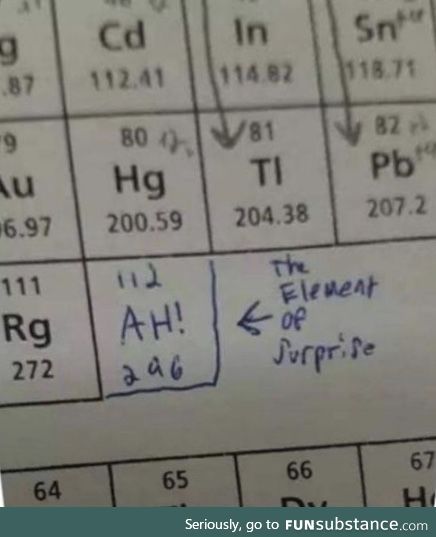 g Cd In Sn
.87 112.41 114.82 118.71
9 80 81 82
Au Hg Tl Pb
6.97 200.59 204.38 207.2
111 112
Rg AH!
272 296
The
Element
← of
Surprise
64 65 66 67
Dy Ho
Seriously, go to FUNsubstance.com